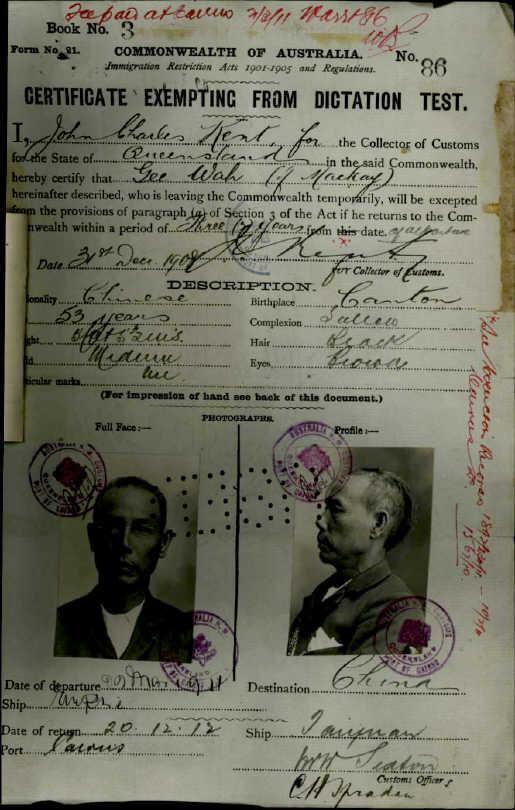 Fee paid at Cairns
Book No. 3
No. 86
Form No. 21.
COMMONWEALTH OF AUSTRALIA.
Immigration Restriction Acts 1901-1905 and Regulations.
CERTIFICATE EXEMPTING FROM DICTATION TEST.
I, John Charles Kent, for the Collector of Customs
for the State of Queensland in the said Commonwealth,
hereby certify that Gee Wah (of Mackay)
hereinafter described, who is leaving the Commonwealth temporarily, will be excepted
from the provisions of paragraph (a) of Section 3 of the Act if he returns to the Com-
monwealth within a period of three (3) years from this date. of departure
Date 31st Dec. 190
for Collector of Customs.
DESCRIPTION.
ionality Chinese Birthplace Canton
53 years Complexion Sallow
ght 5 ft Hair Black
ld Medium Eyes Brown
ticular marks
(For impression of hand see back of this document.)
PHOTOGRAPHS.
Full Face:— Profile:—
Date of departure Destination China
Ship
Date of return 20.12.12 Ship Taiyuan
Port Cairns
Customs Officers